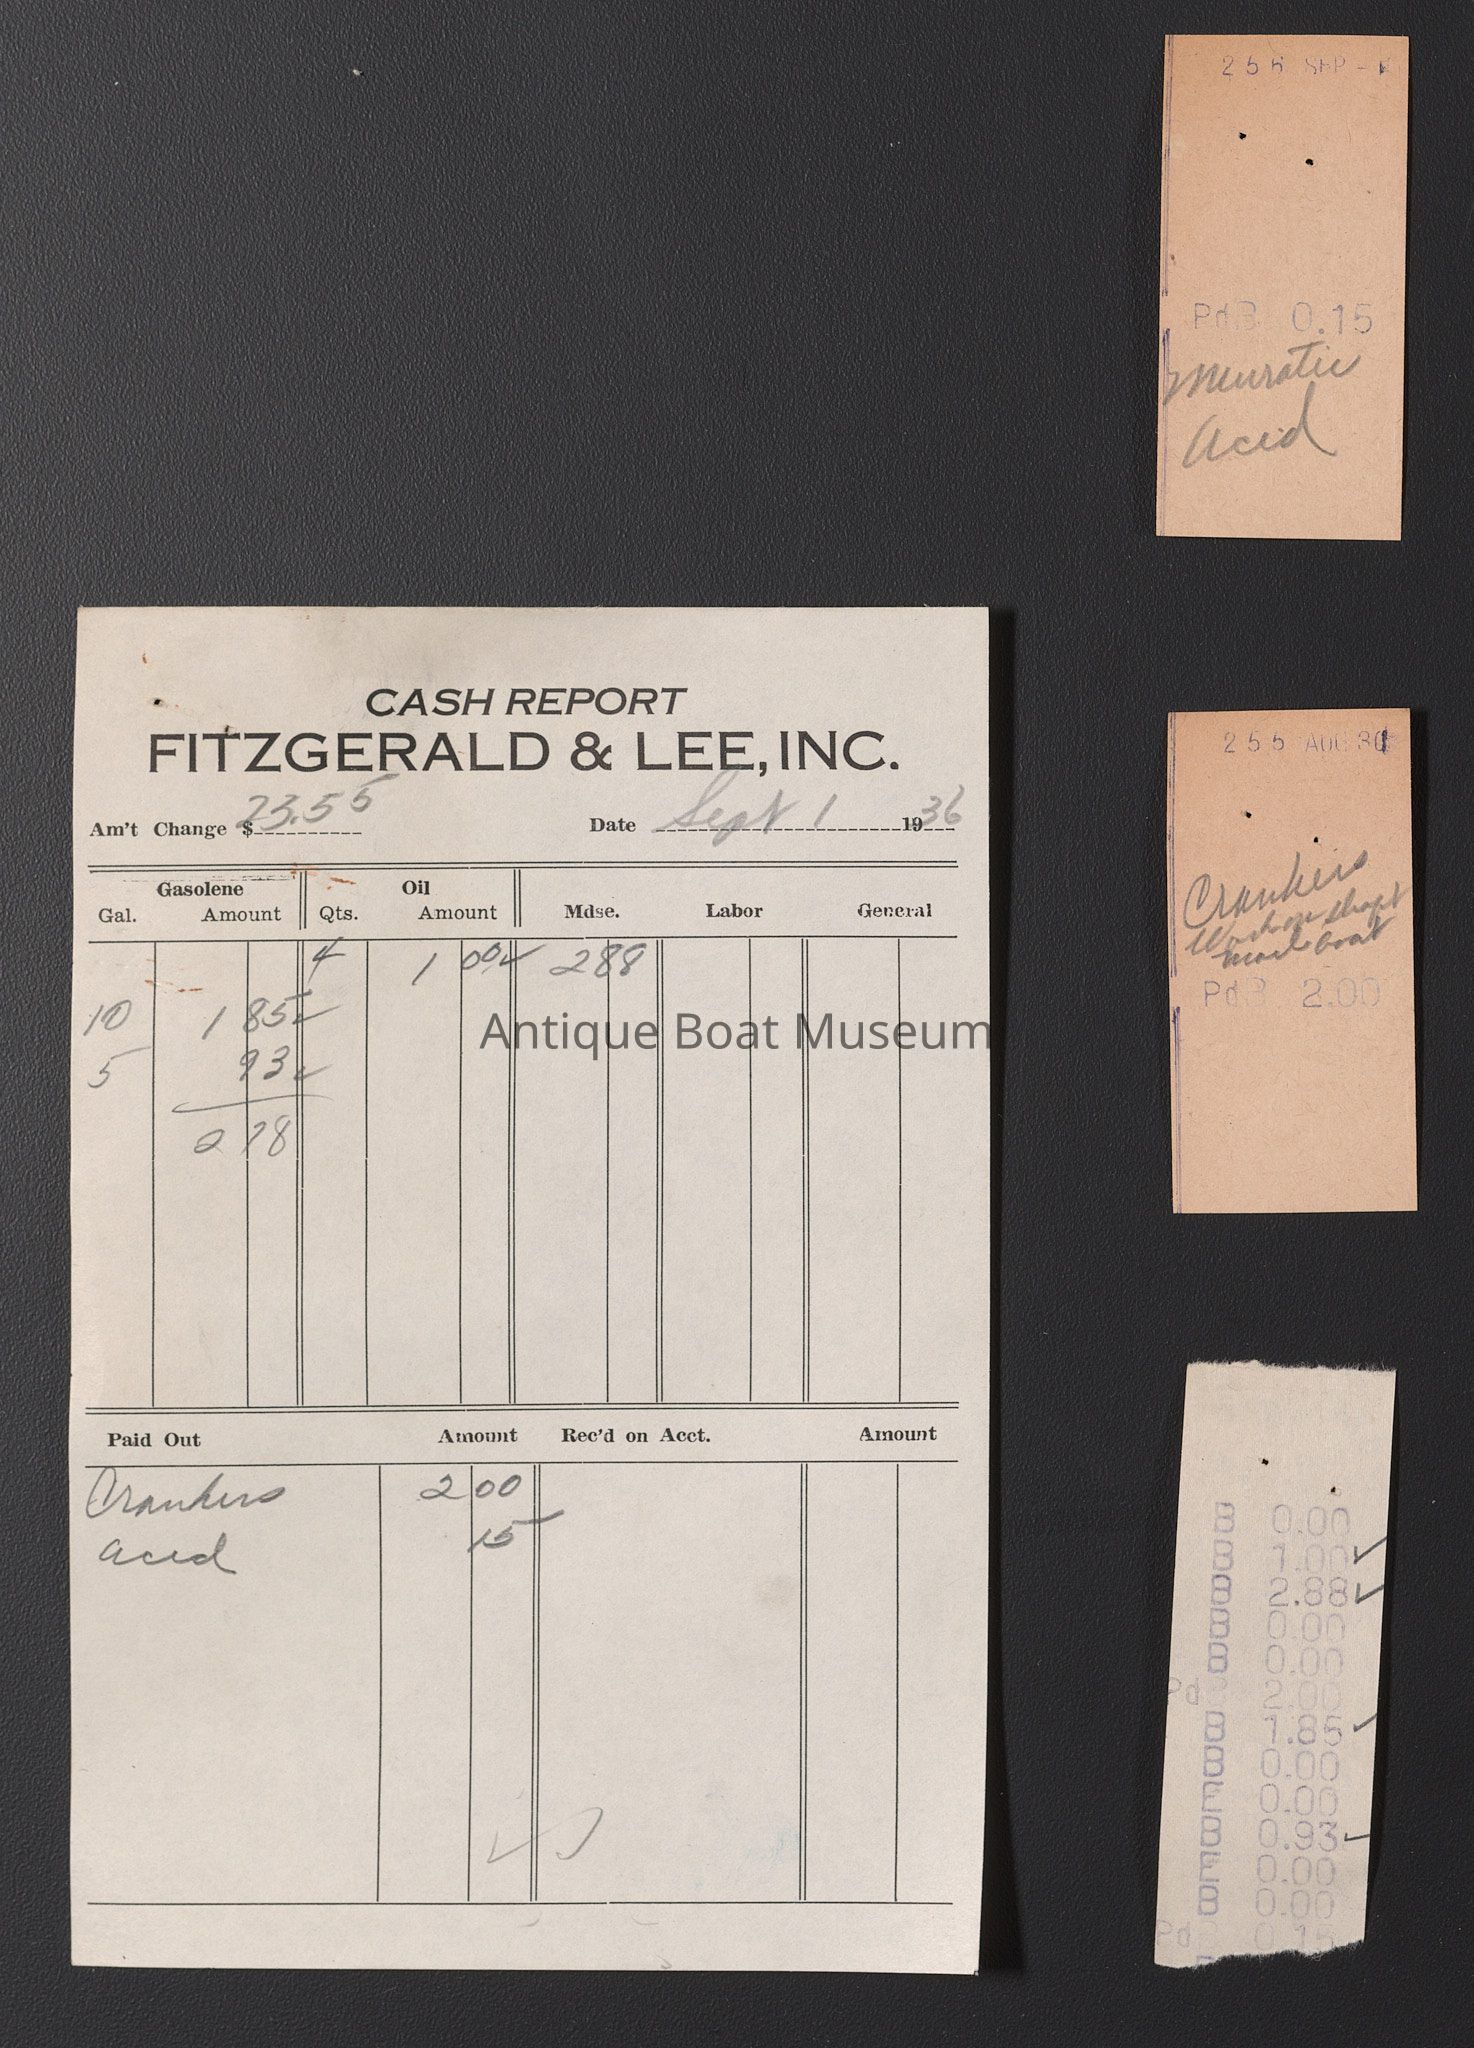 255 SEP -
PdB 0.15
Muratic
Acid
CASH REPORT
FITZGERALD & LEE, INC.
Am't Change $ 23.55 Date Sept 1 1936
Gasolene Oil
Gal. Amount Qts. Amount Mdse. Labor General
4 1 00 ✓ 2 88
10 1 85 ✓
5 93 ✓
2 78
Antique Boat Museum
Paid Out Amount Rec'd on Acct. Amount
Crankers 2 00
Acid 15
255 AUG 30
Crankers
Work on shaft
mail boat
PdB 2.00
B 0.00
B 1.00 ✓
B 2.88 ✓
B 0.00
B 0.00
Pd 2.00
B 1.85 ✓
B 0.00
E 0.00
B 0.93 ✓
E 0.00
B 0.00
Pd 0.15